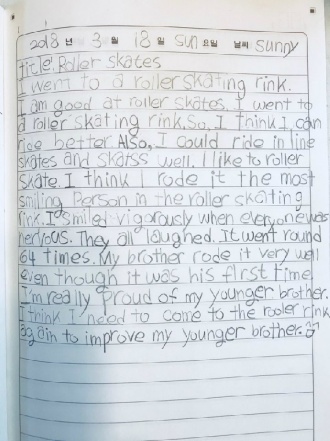 2018 년 3 월 18 일 Sun 요일 날씨 Sunny
title: Roller skates
I went to a roller skating rink.
I am good at roller skates. I went to
a roller skating rink. So, I think I can
ride better. Also, I could ride in line
skates and skatss well. I like to roller
skate. I think I rode it the most
smiling Person in the roller skating
rink. I smiled vigorously when everyone was
nervous. They all laughed. It went round
64 times. My brother rode it very well
even though it was his first time.
I'm really Proud of my younger brother.
I think I need to come to the rooler rink
again to improve my younger brother.